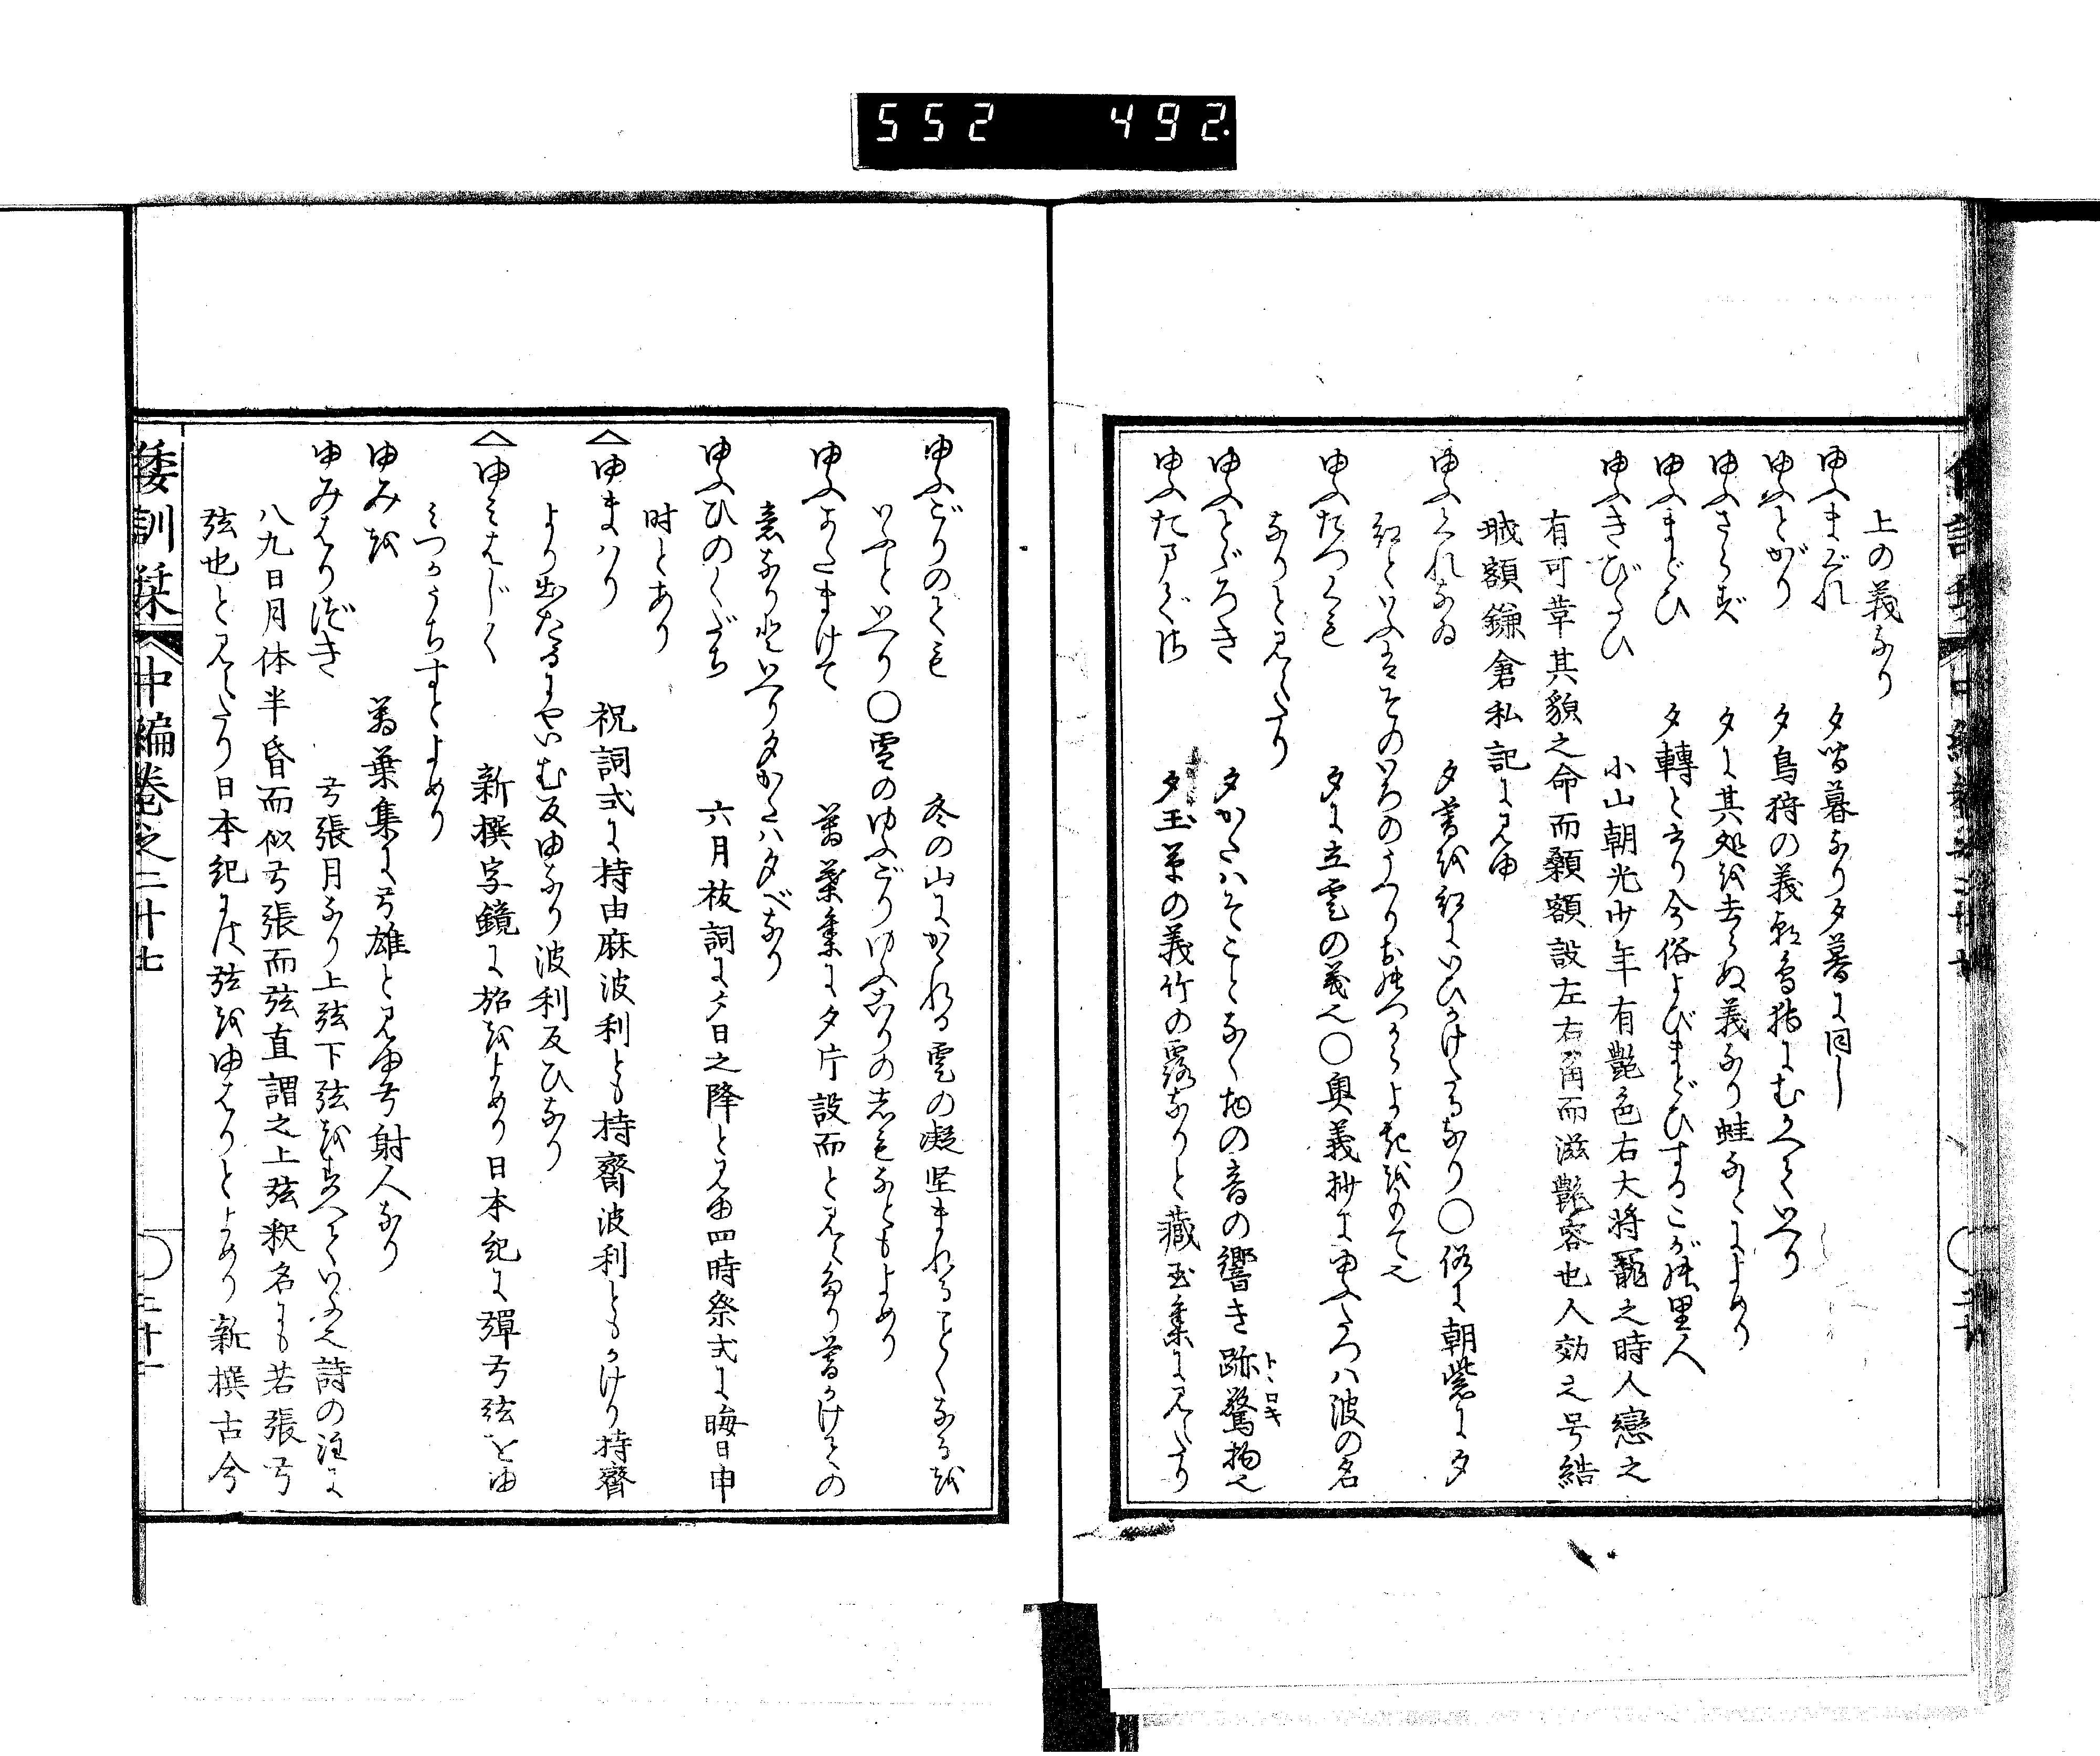 552 492
上の義なり
ゆふまぐれ 夕間暮なり夕暮に同し
ゆふとがり 夕鳥狩の義朝鳥狩にむかへていへり
ゆふさらず 夕に其処を去らぬ義なり蛙なとによめり
ゆふまどひ 夕轉と云り今俗よびまどひするこが様里人
ゆふきびたひ 小山朝光少年有艶色右大将寵之時人戀之
有可章其貌之命而顙額設左右角而滋艶容也人効之号結
城額鎌倉私記に見ゆ
ゆふくれなゐ 夕暮を紅にいひかけたるなり〇俗に朝紫に夕
紅といふはそのいろのうつりお
ゆふたつくも 夕に立雲の義也〇奥義抄にゆふたつハ波の名
なりと見えたり
ゆふとゞろき 夕かたハそことなく物の音の響き跡驚揚也
トヽロキ
ゆふたまぐさ 夕玉草の義竹の露なりと藏玉集に見えたり
ゆふごりのくも 冬の山にかゝれる雲の凝堅まれることくなるを
いふといへり〇雲のゆふごりゆふこりの志もなともよめり
ゆふかたまけて 萬葉集に夕片設而と見えたり暮かけての
意なり也いへり夕かたハ夕べなり
ゆふひのくだち 六月祓詞に夕日之降と見ゆ四時祭式に晦日申
时とあり
ゆまハり 祝詞式に持由麻波利とも持齋波利ともかけり持齋
より出たるにやいむ反ゆなり波利反ひなり
ゆミはじく 新撰字鏡に弨をよめり日本紀に彈弓弦をゆ
ミつるうちすとよめり
ゆみを 萬葉集に弓雄と見ゆ弓射人なり
ゆみはりづき 弓張月なり上弦下弦をすへていふ也詩の注に
八九日月体半昏而似弓張而弦直謂之上弦釈名にも若張弓
弦也と見えたり日本紀には弦をゆはりとよめり新撰古今
倭訓栞 中編巻之二十七 三十一